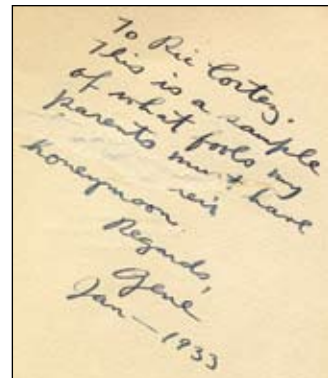 To Ric Cortez.
This is a sample
of what fools my
parents must have
honeymoon.
Regards,
Gene
Jan — 1933